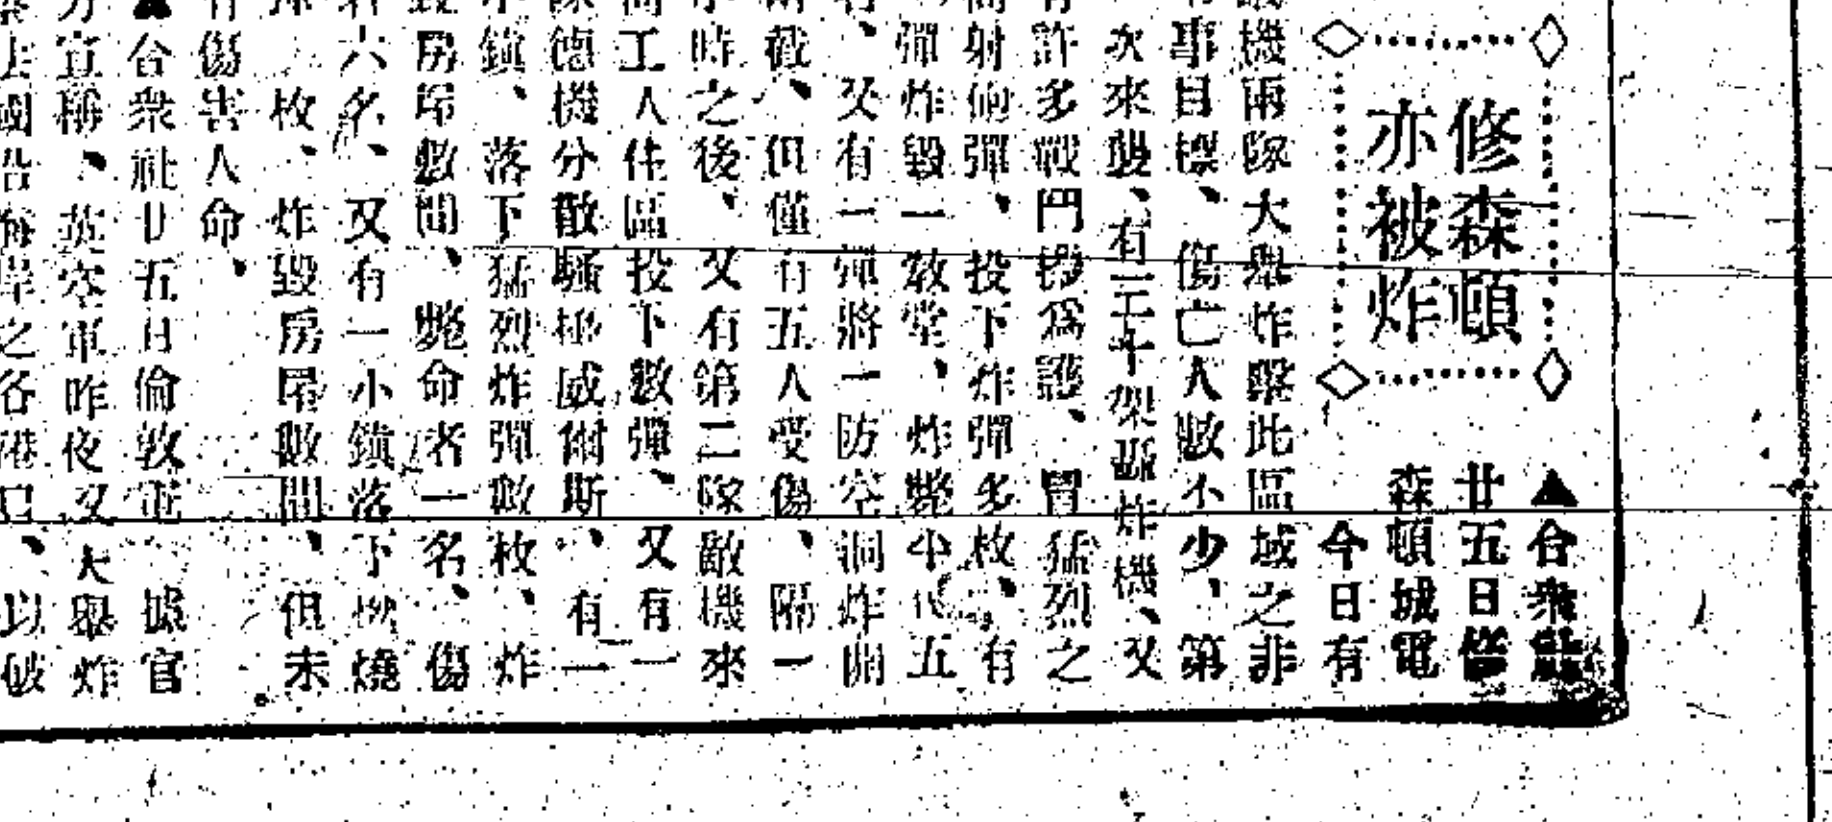 修森頓
亦被炸
▲合衆社
廿五日修
森頓城電
今日有
機兩隊大舉炸擊此區域之非
事目標、傷亡人數不少、第
次來襲、有三十架轟炸機、又
許多戰鬥機爲護、冒猛烈之
射砲彈、投下炸彈多枚、有
彈炸毀一教堂、炸斃 五
、又有一彈將一防空洞炸開
截、但僅有五人受傷、隔一
時之後、又有第二隊敵機來
工人住區投下數彈、又有一
德機分散騷擾威爾斯、有一
鎮、落下猛烈炸彈數枚、炸
房屋數間、斃命者一名、傷
六名、又有一小鎮落下 燒
枚、炸毀房屋數間、但未
傷害人命、
▲合衆社廿五日倫敦電 據官
宣稱、英空軍昨夜又大舉炸
國沿海岸之各港口、以破